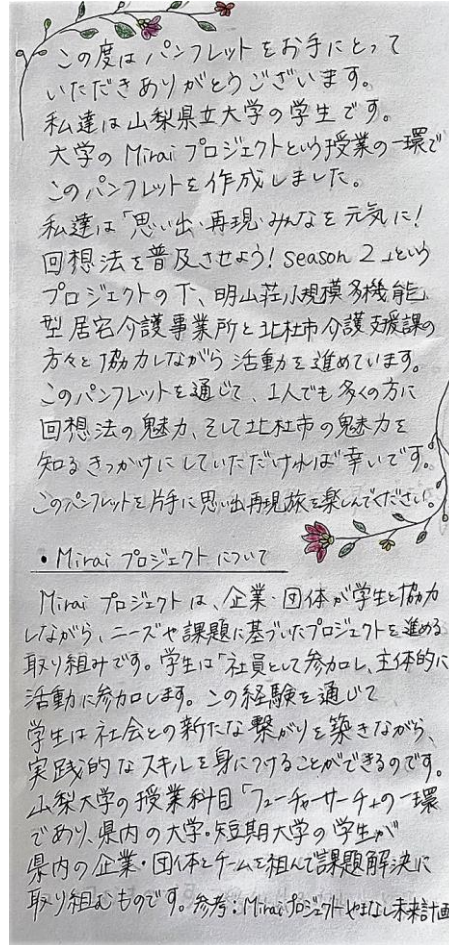 この度はパンフレットをお手にとって
いただきありがとうございます。
私達は山梨県立大学の学生です。
大学のMiraiプロジェクトという授業の一環で
このパンフレットを作成しました。
私達は「思い出・再現・みんなを元気に!
回想法を普及させよう! season 2」という
プロジェクトの下、明山荘小規模多機能
型居宅介護事業所と北杜市介護支援課の
方々と協力しながら活動を進めています。
このパンフレットを通じて、1人でも多くの方に
回想法の魅力、そして北杜市の魅力を
知るきっかけにしていただければ幸いです。
このパンフレットを片手に思い出再現旅を楽しんでください。
・Miraiプロジェクトについて
Miraiプロジェクトは、企業・団体が学生と協力
しながら、ニーズや課題に基づいたプロジェクトを進める
取り組みです。学生は「社員として参加し、主体的に
活動に参加します。この経験を通じて
学生は社会との新たな繋がりを築きながら、
実践的なスキルを身につけることができるのです。
山梨大学の授業科目「フューチャーサーチ」の一環
であり、県内の大学・短期大学の学生が
県内の企業・団体とチームを組んで課題解決に
取り組むものです。参考:Miraiプロジェクトやまなし未来計画